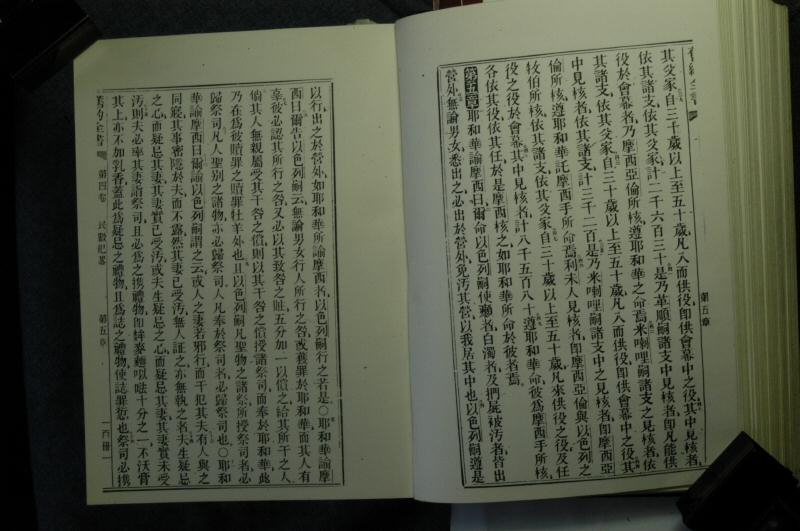 其父家自三十歲以上至五十歲凡入而供役卽供會幕中之役其中見核者
依其諸支依其父家計二千六百三十是乃革順嗣諸支中見核者卽凡能供
役於會幕者乃摩西亞倫所核遵耶和華之命焉米喇哩嗣諸支之見核者依
其諸支依其父家自三十歲以上至五十歲凡入而供役卽供會幕中之役其
中見核者依其諸支計三千二百是乃米喇哩嗣諸支中之見核者卽摩西亞
倫所核遵耶和華託摩西手所命焉利未人見核者卽摩西亞倫與以色列之
牧伯所核依其諸支依其父家自三十歲以上至五十歲凡來供役之役及任
役之役於會幕其中見核者計八千五百八十遵耶和華命彼爲摩西手所核
各依其役依其任於是摩西核之如耶和華所命於彼者焉
第五章耶和華諭摩西曰爾命以色列嗣使癩者白濁者及捫屍被汚者皆出
營外無論男女悉出之必出於營外免汚其營以我居其中也以色列嗣遵是
第五章
以行出之於營外如耶和華所諭摩西者以色列嗣行之若是○耶和華諭摩
西曰爾告以色列嗣云無論男女行人所行之咎或獲罪於耶和華而其人有
辜彼必認其所行之咎又必以其致咎之贓五分加一以償之給其所干之人
倘其人無親屬受其干咎之償則以其干咎之償授諸祭司而奉於耶和華此
乃在爲彼贖罪之贖罪牡羊外也且以色列嗣凡聖物之諸祭所授祭司者必
歸祭司凡人聖別之諸物亦必歸祭司人凡奉於祭司者必歸祭司也○耶和
華諭摩西曰爾諭以色列嗣謂之云或人之妻若邪行而干犯其夫有人與之
同寢其事密隱於夫而不露然其妻已受汚無人証之亦無執之者夫生疑忌
之心而疑忌其妻其妻實已受汚或夫生疑忌之心而疑忌其妻其妻實未受
汚則夫必率其妻詣祭司且必爲之攜禮物卽大麥麵以呿十分之一不沃膏
其上亦不加乳香蓋此爲疑忌之禮物且爲誌之禮物使誌罪愆也祭司必攜
舊約全書 第四卷 民數紀畧 第五章